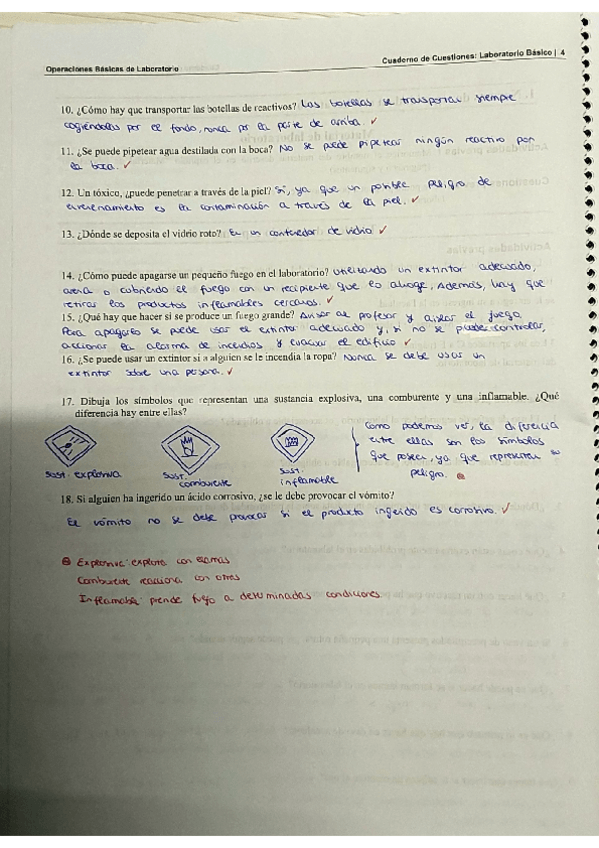 Operaciones Básicas de Laboratorio
Cuaderno de Cuestiones: Laboratorio Básico | 4
10. ¿Cómo hay que transportar las botellas de reactivos? Las botellas se transportan siempre
cogiéndolas por el fondo, nunca por la parte de arriba. ✓
11. ¿Se puede pipetear agua destilada con la boca? No se puede pipetear ningún reactivo por
la boca. ✓
12. Un tóxico, ¿puede penetrar a través de la piel? Sí, ya que un posible peligro de
envenenamiento es la contaminación a través de la piel. ✓
13. ¿Dónde se deposita el vidrio roto? En un contenedor de vidrio ✓
14. ¿Cómo puede apagarse un pequeño fuego en el laboratorio? Utilizando un extintor adecuado,
arena o cubriendo el fuego con un recipiente que lo ahogue, Además, hay que
retirar los productos inflamables cercanos. ✓
15. ¿Qué hay que hacer si se produce un fuego grande? Avisar al profesor y aislar el fuego.
Para apagarlo se puede usar el extintor adecuado y, si no se puede controlar,
accionar la alarma de incendios y evacuar el edificio ✓
16. ¿Se puede usar un extintor si a alguien se le incendia la ropa? Nunca se debe usar un
extintor sobre una persona. ✓
17. Dibuja los símbolos que representan una sustancia explosiva, una comburente y una inflamable. ¿Qué
diferencia hay entre ellas?
Sust. explosiva
Sust. comburente
Sust. inflamable
Como podemos ver, la diferencia
entre ellas son los símbolos
que poseen, ya que representan su
peligro.
18. Si alguien ha ingerido un ácido corrosivo, ¿se le debe provocar el vómito?
El vómito no se debe provocar si el producto ingerido es corrosivo. ✓
Explosiva: explota con
Comburente reacciona con otras
Inflamable: prende fuego a determinadas condiciones